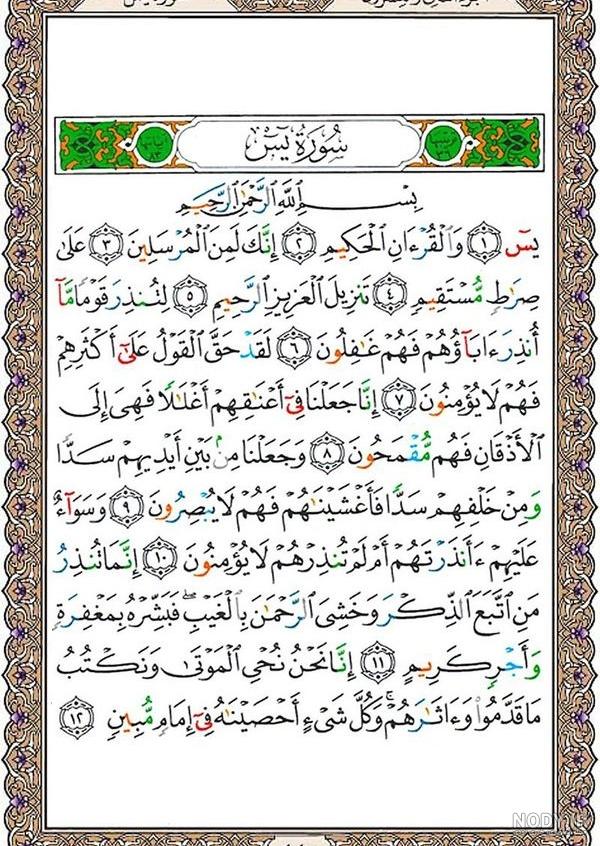 سُورَةُ يسٓ
بِسْمِ ٱللَّهِ ٱلرَّحْمَٰنِ ٱلرَّحِيمِ
يسٓ ﴿١﴾ وَٱلْقُرْءَانِ ٱلْحَكِيمِ ﴿٢﴾ إِنَّكَ لَمِنَ ٱلْمُرْسَلِينَ ﴿٣﴾ عَلَىٰ
صِرَٰطٍ مُّسْتَقِيمٍ ﴿٤﴾ تَنزِيلَ ٱلْعَزِيزِ ٱلرَّحِيمِ ﴿٥﴾ لِتُنذِرَ قَوْمًا مَّآ
أُنذِرَ ءَابَآؤُهُمْ فَهُمْ غَٰفِلُونَ ﴿٦﴾ لَقَدْ حَقَّ ٱلْقَوْلُ عَلَىٰٓ أَكْثَرِهِمْ
فَهُمْ لَا يُؤْمِنُونَ ﴿٧﴾ إِنَّا جَعَلْنَا فِىٓ أَعْنَٰقِهِمْ أَغْلَٰلًا فَهِىَ إِلَى
ٱلْأَذْقَانِ فَهُم مُّقْمَحُونَ ﴿٨﴾ وَجَعَلْنَا مِنۢ بَيْنِ أَيْدِيهِمْ سَدًّا
وَمِنْ خَلْفِهِمْ سَدًّا فَأَغْشَيْنَٰهُمْ فَهُمْ لَا يُبْصِرُونَ ﴿٩﴾ وَسَوَآءٌ
عَلَيْهِمْ ءَأَنذَرْتَهُمْ أَمْ لَمْ تُنذِرْهُمْ لَا يُؤْمِنُونَ ﴿١٠﴾ إِنَّمَا تُنذِرُ
مَنِ ٱتَّبَعَ ٱلذِّكْرَ وَخَشِىَ ٱلرَّحْمَٰنَ بِٱلْغَيْبِ ۖ فَبَشِّرْهُ بِمَغْفِرَةٍ
وَأَجْرٍ كَرِيمٍ ﴿١١﴾ إِنَّا نَحْنُ نُحْىِ ٱلْمَوْتَىٰ وَنَكْتُبُ
مَا قَدَّمُوا۟ وَءَاثَٰرَهُمْ ۚ وَكُلَّ شَىْءٍ أَحْصَيْنَٰهُ فِىٓ إِمَامٍ مُّبِينٍ ﴿١٢﴾